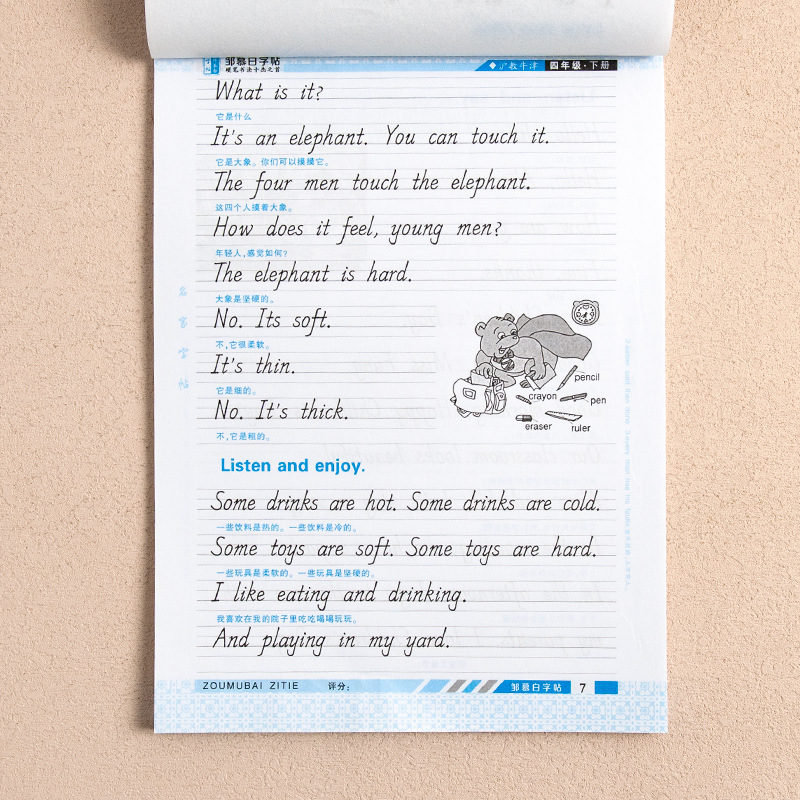 邹慕白字帖
硬笔书法十杰之首
沪教牛津 四年级·下册
What is it?
它是什么
It's an elephant. You can touch it.
它是大象。你们可以摸摸它。
The four men touch the elephant.
这四个人摸着大象。
How does it feel, young men?
年轻人,感觉如何?
The elephant is hard.
大象是坚硬的。
No. Its soft.
不,它很柔软。
It's thin.
它是细的。
No. It's thick.
不,它是粗的。
pencil
crayon
pen
eraser
ruler
Listen and enjoy.
Some drinks are hot. Some drinks are cold.
一些饮料是热的。一些饮料是冷的。
Some toys are soft. Some toys are hard.
一些玩具是柔软的。一些玩具是坚硬的。
I like eating and drinking.
我喜欢在我的院子里吃吃喝喝玩玩。
And playing in my yard.
ZOUMUBAI ZITIE 评分: 邹慕白字帖 7